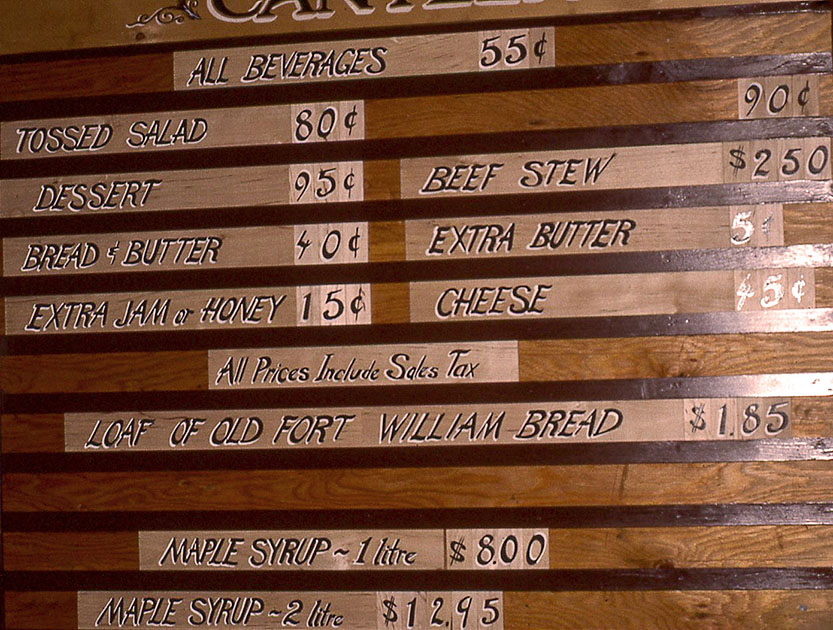 ALL BEVERAGES 55¢
90¢
TOSSED SALAD 80¢
BEEF STEW $250
DESSERT 95¢
EXTRA BUTTER 5¢
BREAD & BUTTER 40¢
CHEESE 45¢
EXTRA JAM or HONEY 15¢
All Prices Include Sales Tax
LOAF OF OLD FORT WILLIAM BREAD $1.85
MAPLE SYRUP ~ 1 litre $8.00
MAPLE SYRUP ~ 2 litre $12.95